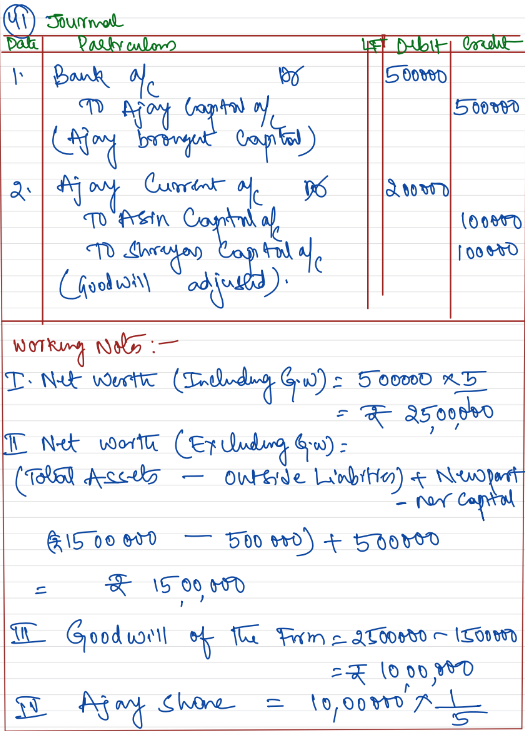 41 Journal
Date Particulars LF Debit Credit
1. Bank a/c Dr 500000
To Ajay Capital a/c 500000
(Ajay brought capital)
2. Ajay Current a/c Dr 200000
To Asin Capital a/c 100000
To Shreyas Capital a/c 100000
(Goodwill adjusted).
Working Notes :-
I. Net Worth (Including G.W) = 500000 × 5/1
= ₹ 25,00,000
II Net worth (Excluding G.W) =
(Total Assets - Outside Liabilities) + New part
- ner capital
(₹1500000 - 500000) + 500000
= ₹ 15,00,000
III Goodwill of the Firm = 2500000 - 1500000
= ₹ 10,00,000
IV Ajay share = 10,00000 × 1/5